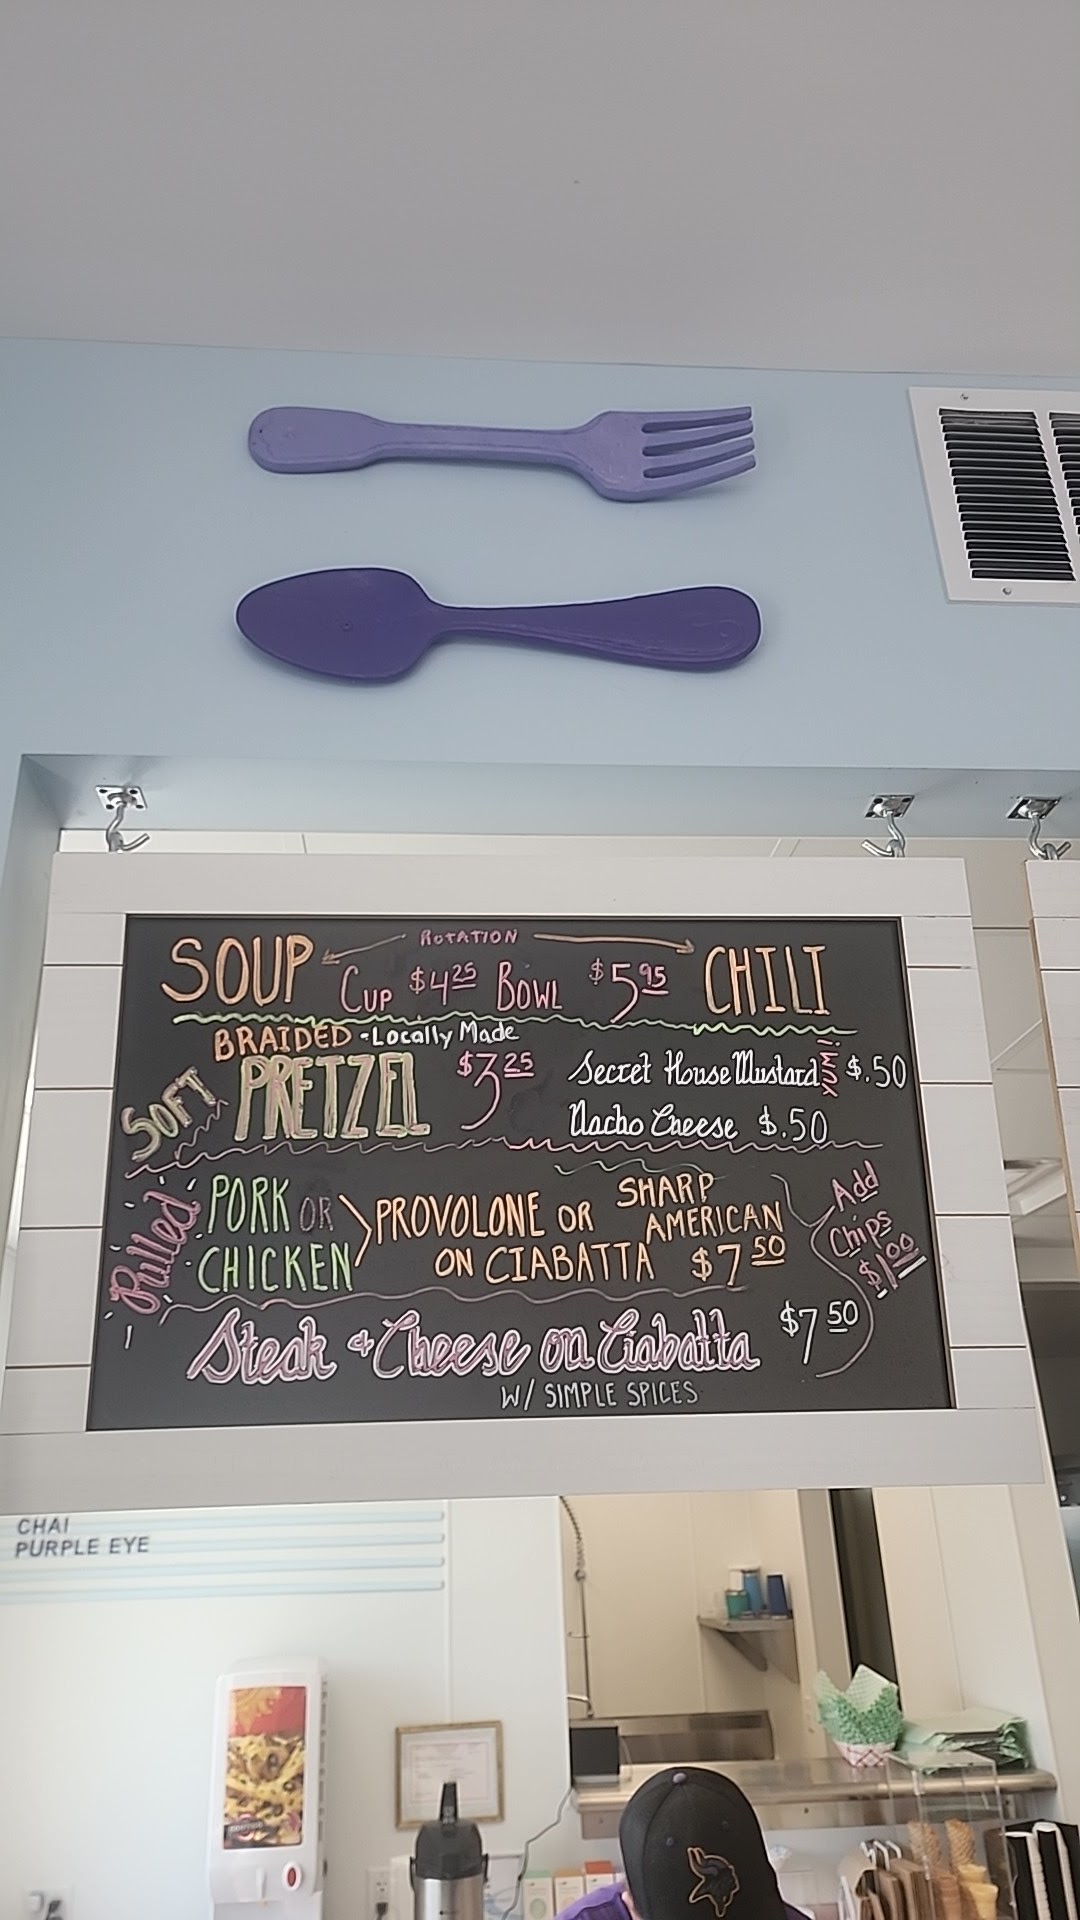 ROTATION
SOUP CUP $4.25 BOWL $5.95 CHILI
BRAIDED - Locally Made
SOFT PRETZEL $3.25
Secret House Mustard YUM! $.50
Nacho Cheese $.50
Pulled PORK OR CHICKEN
PROVOLONE OR SHARP AMERICAN
ON CIABATTA $7.50
Add Chips $1.00
Steak & Cheese on Ciabatta $7.50
W/ SIMPLE SPICES
CHAI
PURPLE EYE